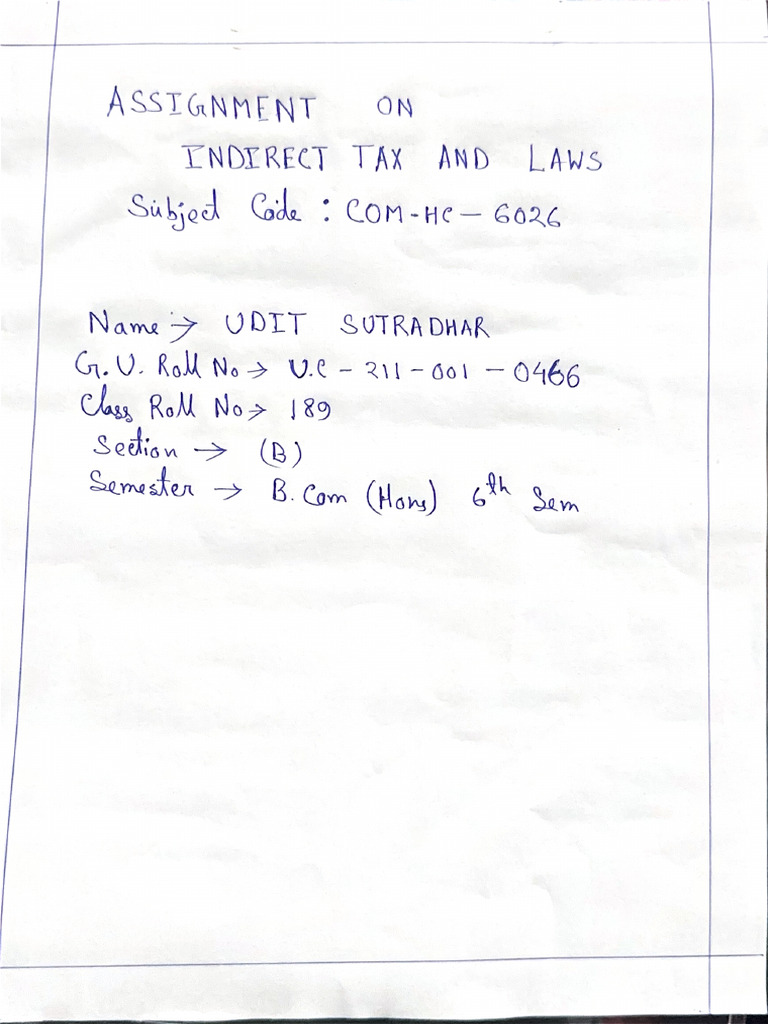 ASSIGNMENT ON
INDIRECT TAX AND LAWS
Subject Code : COM-HC-6026
Name → UDIT SUTRADHAR
G.U. Roll No → U.C - 211 - 001 - 0466
Class Roll No → 189
Section → (B)
Semester → B.Com (Hons) 6th Sem